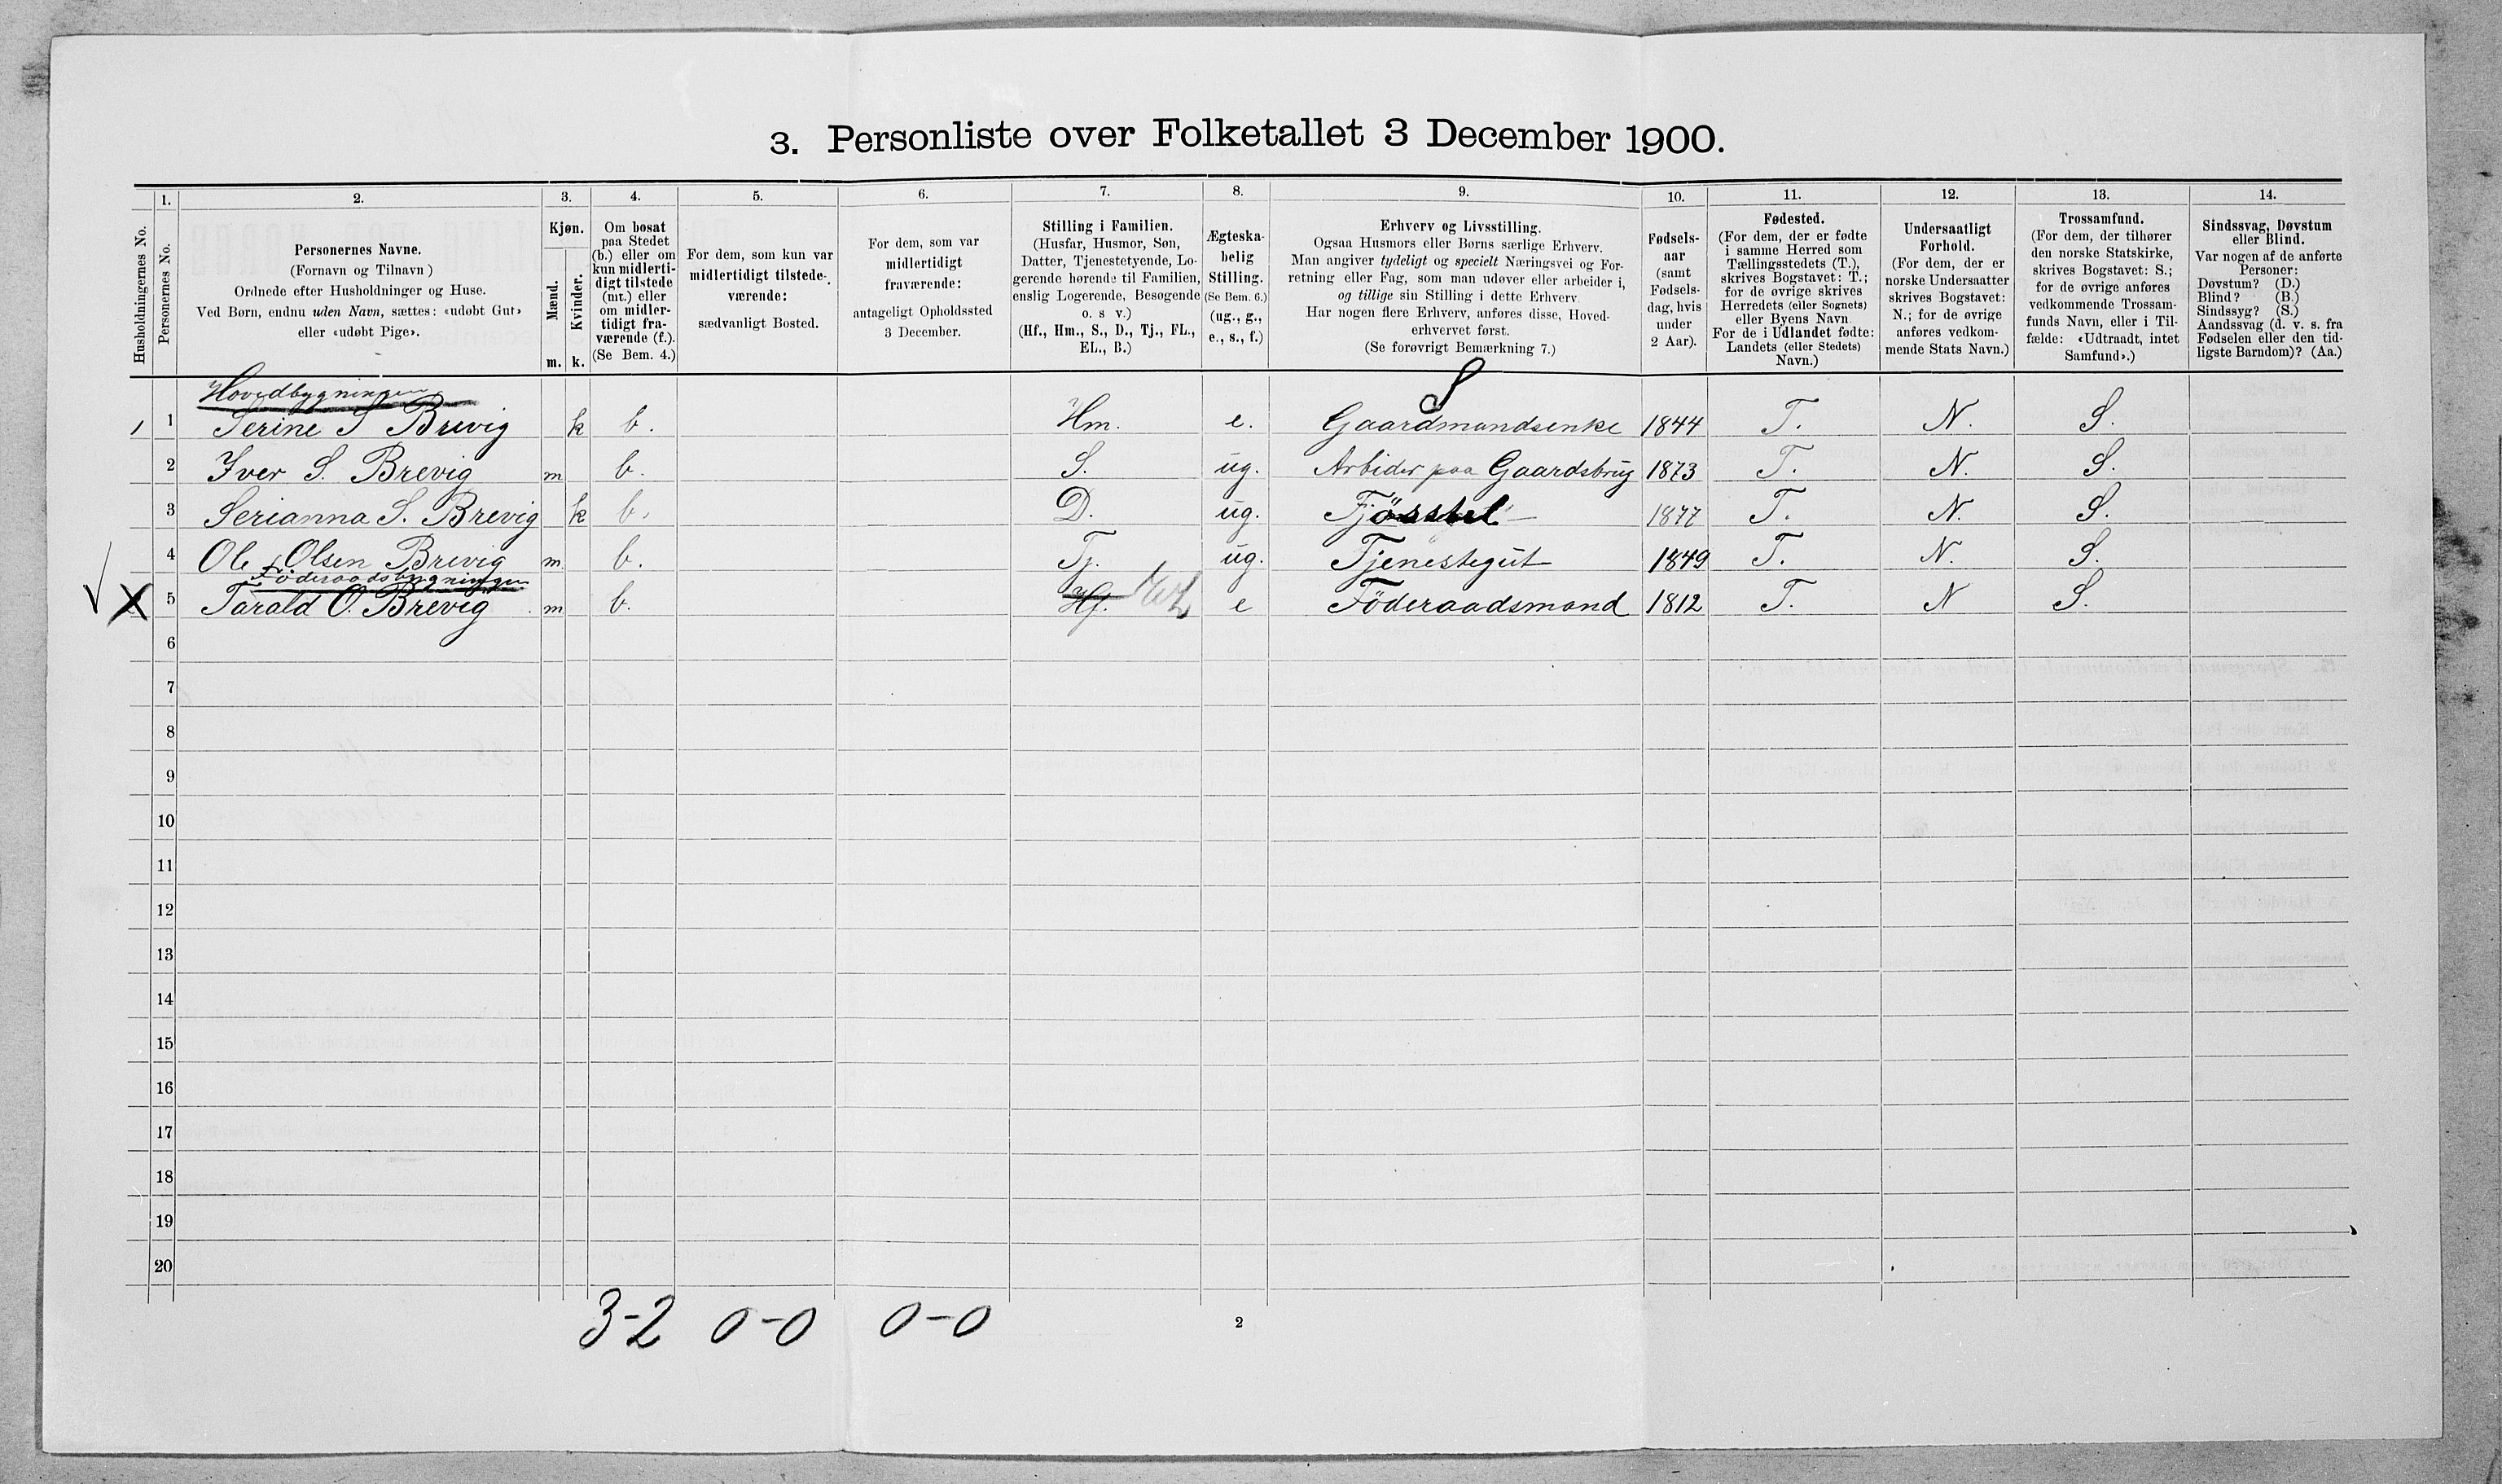 3. Personliste over Folketallet 3 December 1900.
1. 2. 3. 4. 5. 6. 7. 8. 9. 10. 11. 12. 13. 14.
Husholdningernes No.
Personernes No.
Personernes Navne.
(Fornavn og Tilnavn)
Ordnede efter Husholdninger og Huse.
Ved Børn, endnu uden Navn, sættes: «udøbt Gut»
eller «udøbt Pige».
Kjøn.
Mænd.
Kvinder.
m. k.
Om bosat
paa Stedet
(b.) eller om
kun midlerti-
digt tilstede
(mt.) eller
om midler-
tidigt fra-
værende (f.).
(Se Bem. 4.)
For dem, som kun var
midlertidigt tilstede-
værende:
sædvanligt Bosted.
For dem, som var
midlertidigt
fraværende:
antageligt Opholdssted
3 December.
Stilling i Familien.
(Husfar, Husmor, Søn,
Datter, Tjenestetyende, Lo-
gerende hørende til Familien,
enslig Logerende, Besøgende
o. s. v.)
(Hf., Hm., S., D., Tj., FL.,
EL., B.)
Ægteska-
belig
Stilling.
(Se Bem. 6.)
(ug., g.,
e., s., f.)
Erhverv og Livsstilling.
Ogsaa Husmors eller Børns særlige Erhverv.
Man angiver tydeligt og specielt Næringsvei og For-
retning eller Fag, som man udøver eller arbeider i,
og tillige sin Stilling i dette Erhverv.
Har nogen flere Erhverv, anføres disse, Hoved-
erhvervet først.
(Se forøvrigt Bemærkning 7.)
Fødsels-
aar
(samt
Fødsels-
dag, hvis
under
2 Aar).
Fødested.
(For dem, der er fødte
i samme Herred som
Tællingsstedets (T.),
skrives Bogstavet: T.;
for de øvrige skrives
Herredets (eller Sognets)
eller Byens Navn.
For de i Udlandet fødte:
Landets (eller Stedets)
Navn.)
Undersaatligt
Forhold.
(For dem, der er
norske Undersaatter
skrives Bogstavet:
N.; for de øvrige
anføres vedkom-
mende Stats Navn.)
Trossamfund.
(For dem, der tilhører
den norske Statskirke,
skrives Bogstavet: S.;
for de øvrige anføres
vedkommende Trossam-
funds Navn, eller i Til-
fælde: «Udtraadt, intet
Samfund».)
Sindssvag, Døvstum
eller Blind.
Var nogen af de anførte
Personer:
Døvstum? (D.)
Blind? (B.)
Sindssyg? (S.)
Aandssvag (d. v. s. fra
Fødselen eller den tid-
ligste Barndom)? (Aa.)
Hovedbygningen S
1 1 Serine S Brevig k b. Hm. e. Gaardmandsenke 1844 T. N. S.
2 Iver S. Brevig m b. S. ug. Arbider paa Gaardsbrug 1873 T. N. S.
3 Serianna S. Brevig k b. D. ug. Fjösstel 1877 T. N. S.
4 Ole Olsen Brevig m. b. Tj. ug. Tjenestegut 1849 T. N. S.
Föderaadsbygningen
X 5 Tarald O. Brevig m b. Hf. e Föderaadsmand 1812 T. N S.
6
7
8
9
10
11
12
13
14
15
16
17
18
19
20
3-2 0-0 0-0
2